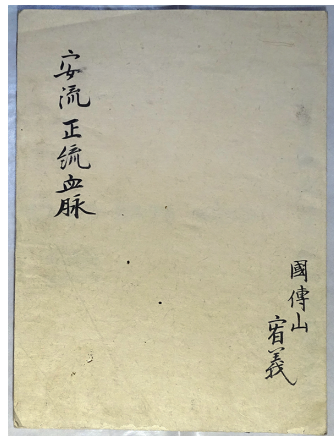 安流正統血脉
國傳山
宥義